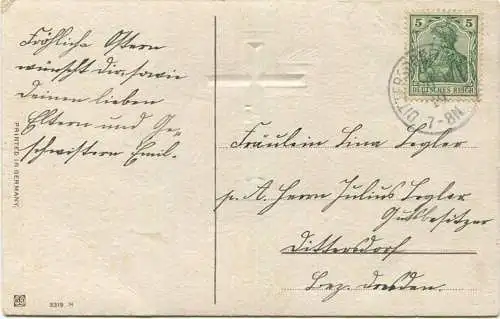 Fröhliche Ostern
wünscht dir, sowie
Deinen lieben
Eltern und Ge-
schwistern Emil.
PRINTED IN GERMANY.
3319. H
5 5
DEUTSCHES REICH
7-8N
Fräulein Lina Legler
p. A. Herrn Julius Legler
Gutsbesitzer
Dittersdorf
Bez. Dresden.